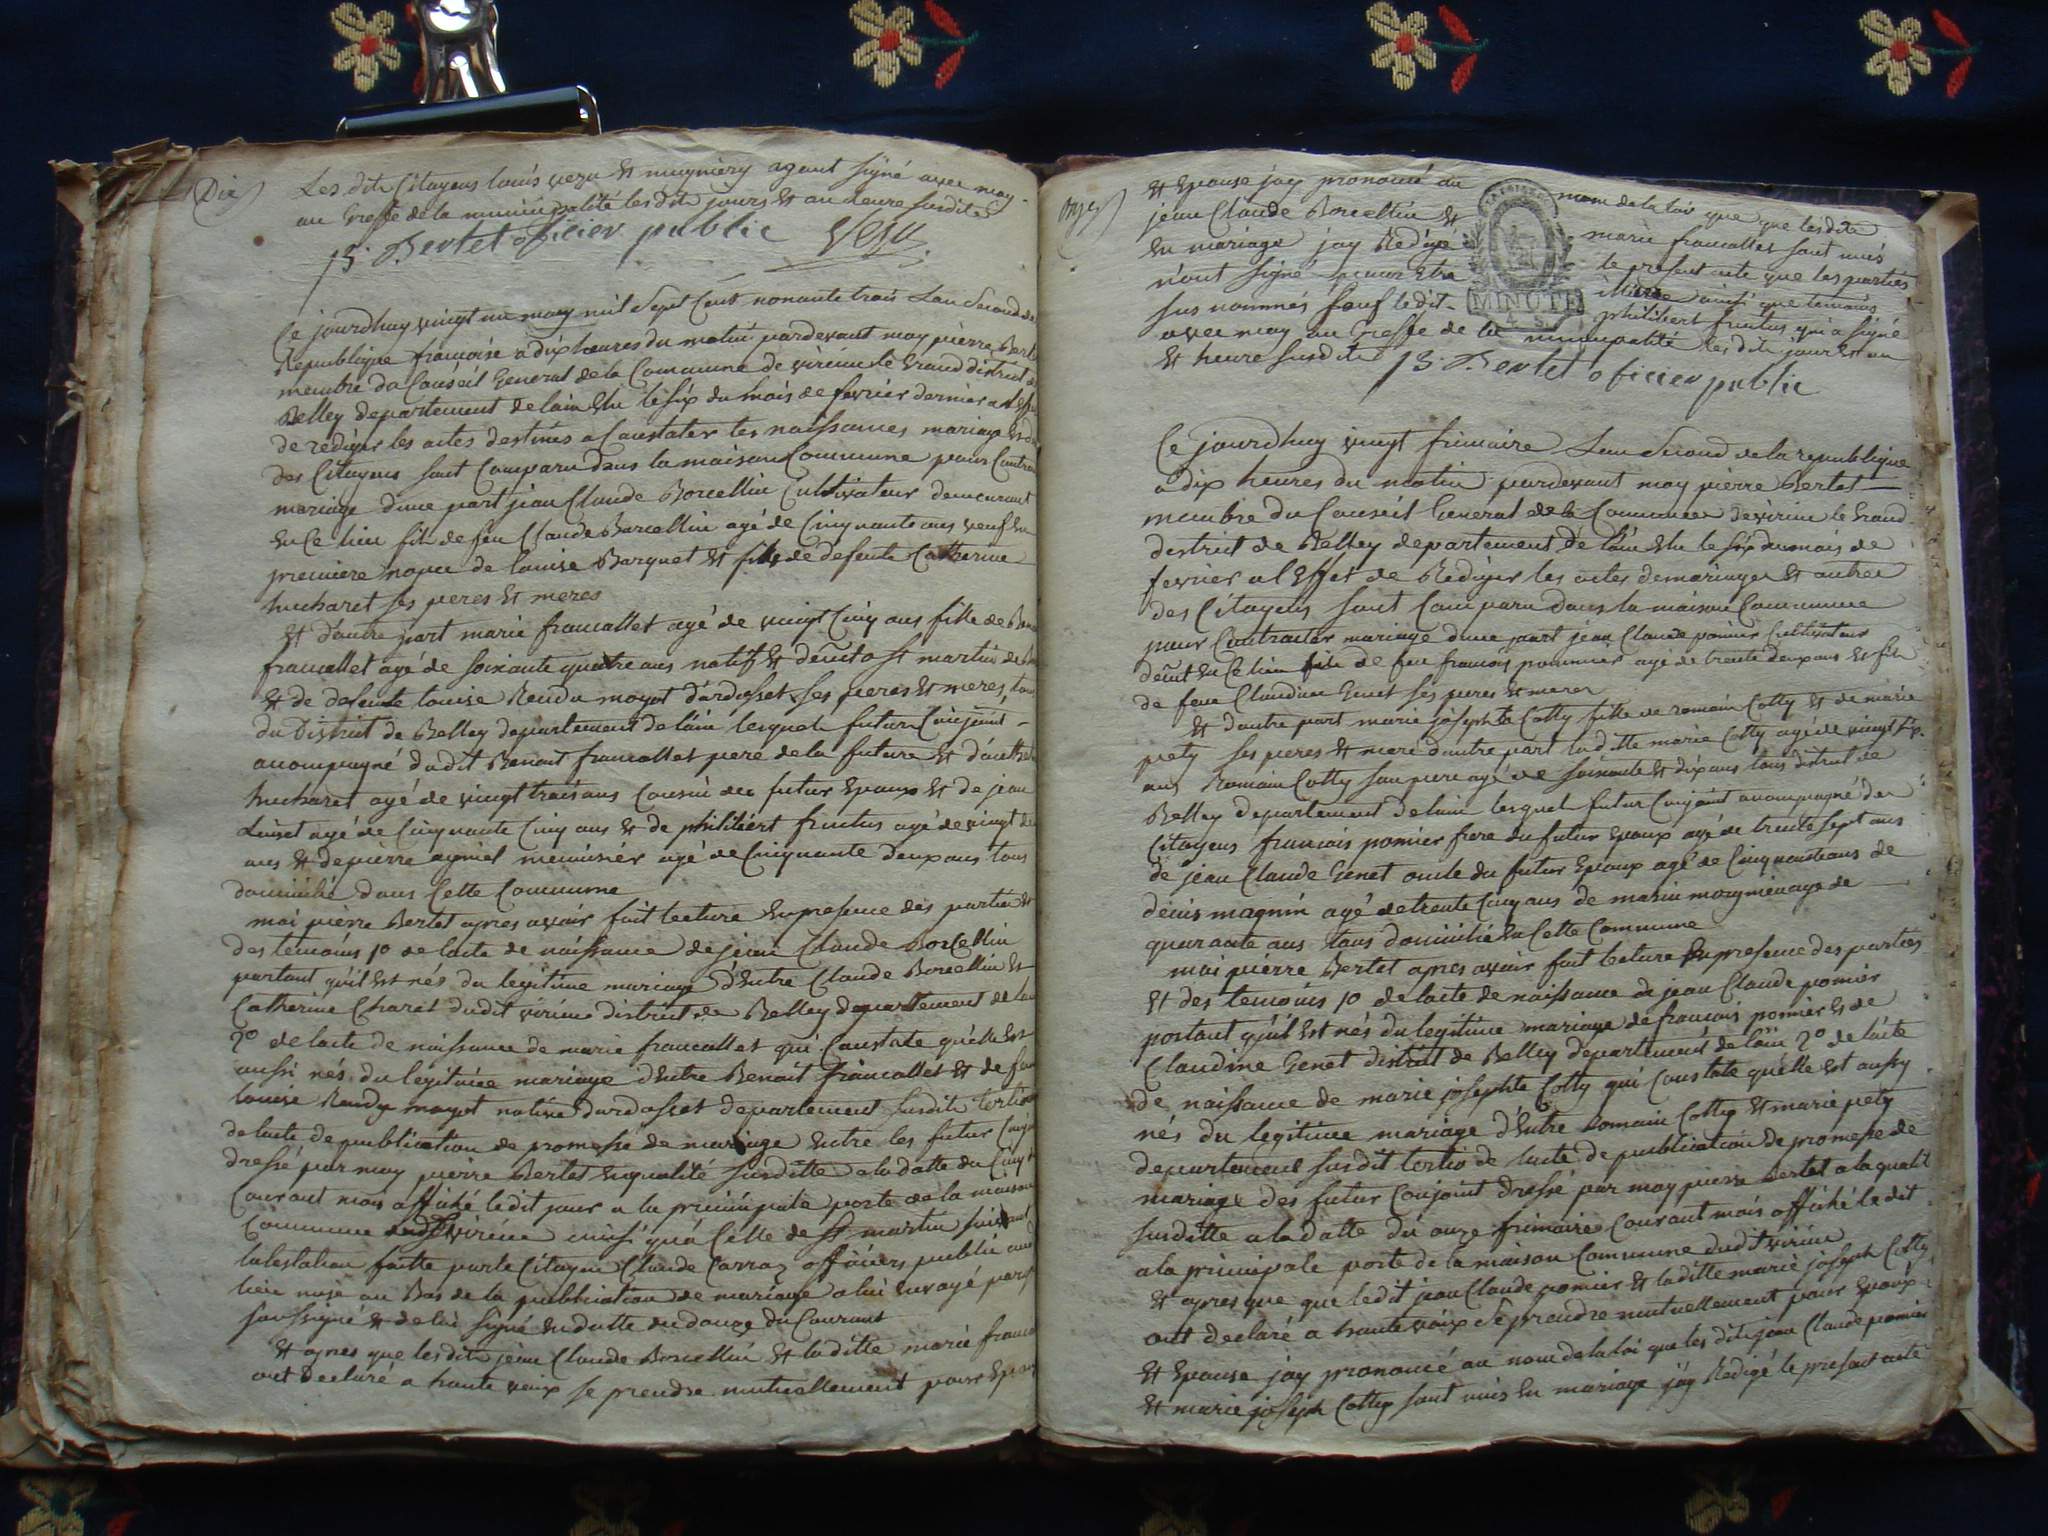 Dix
Les dits Citoyens louis vezu et mugniery ayant signé avec moy
au Greffe de la municipalité lesdits jours et an heure susdites
P. Bertet officier public Vezu
Ce jourdhuy vingt un may mil Sept Cent nonante trois Lan Second de
Republique francoise a dix heures du matin pardevant moy pierre Berte
membre du Conseil General de la Commune de virieu le Grand district de
Belley departement de lain Elu le six du mois de fevrier dernier a
de rediger les actes destinés a Constater les naissances mariage
des Citoyens sont Comparu dans la maison Commune pour Contra
mariage dune part jean Claude Borcellin Cultivateur demeurant
en Ce lieu fils de feu Claude Borcellin agé de Cinquante ans veuf en
premiere nopce de louise Barquet et fils de defunte Catherine
hucharet ses peres et meres
et d'autre part marie francallet agé de vingt Cinq ans fille de
francallet agé de soixante quatre ans natif et demt a St martin de
et de defunte louise Rendu mayot dardosset ses peres et meres, tous
du District de Belley departement de lain lesquels futurs Conjoint
acompagné dudit Benoit francallet pere de la future et
hucharet agé de vingt trois ans Cousin du futur Epoux et de jean
Luiset agé de Cinquante Cinq ans et de philibert fructus agé de vingt
ans et de pierre menuisier agé de Cinquante deux ans tous
domicilié dans Cette Commune
moi pierre Bertet apres avoir fait lecture en presence des parties et
des temoins 1o de lacte de naissance de jean Claude Borcellin
portant quil est nés du legitime mariage d'Entre Claude Borcellin et
Catherine Charet dudit virieu district de Belley departement de lain
2o de lacte de naissance de marie francallet qui Constate quelle est
aussi nés du legitime mariage d'Entre Benoit francallet et de
louise Rendu mayot native dardosset departement susdit tertio
de lacte de publication de promesse de mariage entre les futur
dressé par moy pierre Bertet en qualité susditte a la datte du Cinq
Courant mois affiché ledit jour a la principale porte de la maison
Commune virieu ainsi qua Celle de St martin suivant
latestation faitte par le Citoyen Claude Carraz officiers public
lieu mise au Bas de la publication de mariage a lui envoyé par
soussigné et de lui signé en datte du douze du Courant
et apres que lesdits jean Claude Borcellin et laditte marie
ont declaré a haute voix se prendre mutuellement pour Epoux
onze
et Epouse jay prononcé au nom de la loi que que lesdits
jean Claude Borcellin et marie francallet sont unis
en mariage jay Redigé le present acte que les parties
n'ont signé ainsi que temoins
sus nommés sauf ledit philibert fructus qui a signé
avec moy au Greffe de la municipalité lesdits jours et an
et heure susdits P. Bertet officier public
MINUTE
Ce jourdhuy vingt frimaire Lan Second de la republique
a dix heures du matin pardevant moy pierre Bertet
membre du Conseil General de la Commune de virieu le Grand
district de Belley departement de lain Elu le six du mois de
fevrier a l'Effet de Rediger les actes de mariage et autres
des Citoyens sont Comparu dans la maison Commune
pour Contracter mariage dune part jean Claude pomier Cultivateur
demt en Ce lieu fils de feu francois pommier agé de trente deux ans et fils
de feue Claudine Genet ses peres et meres
et d'autre part marie josephte Cotty fille de romain Cotty et de marie
pety ses peres et mere dautre part laditte marie Cotty agé de vingt six
ans Romain Cotty son pere agé de soixante et dix ans tous district de
Belley departement de lain lesquels futur Conjoint acompagné des
Citoyens francois pomier frere du futur Epoux agé de trente sept ans
de jean Claude Genet oncle du futur Epoux agé de Cinquante ans de
denis magnin agé de trente Cinq ans de marin agé de
quarante ans tous domicilié en Cette Commune
moi pierre Bertet apres avoir fait lecture En presence des parties
et des temoins 1o de lacte de naissance de jean Claude pomier
portant quil est nés du legitime mariage de francois pomier et de
Claudine Genet district de Belley departement de lain 2o de lacte
de naissance de marie josephte Cotty qui Constate quelle est aussy
nés du legitime mariage d'Entre Romain Cotty et marie pety
departement susdit tertio de lacte de publication de promesse de
mariage des futur Conjoint dressé par moy pierre Bertet a la qualité
susditte a la datte du onze frimaire Courant mois affiché ledit
a la principale porte de la maison Commune dudit virieu
et apres que que ledit jean Claude pomier et laditte marie joseph Cotty
ont declaré a haute voix se prendre mutuellement pour Epoux
et Epouse jay prononcé au nom de la loi que lesdits jean Claude pomier
et marie joseph Cotty sont unis en mariage j'ay Redigé le present acte